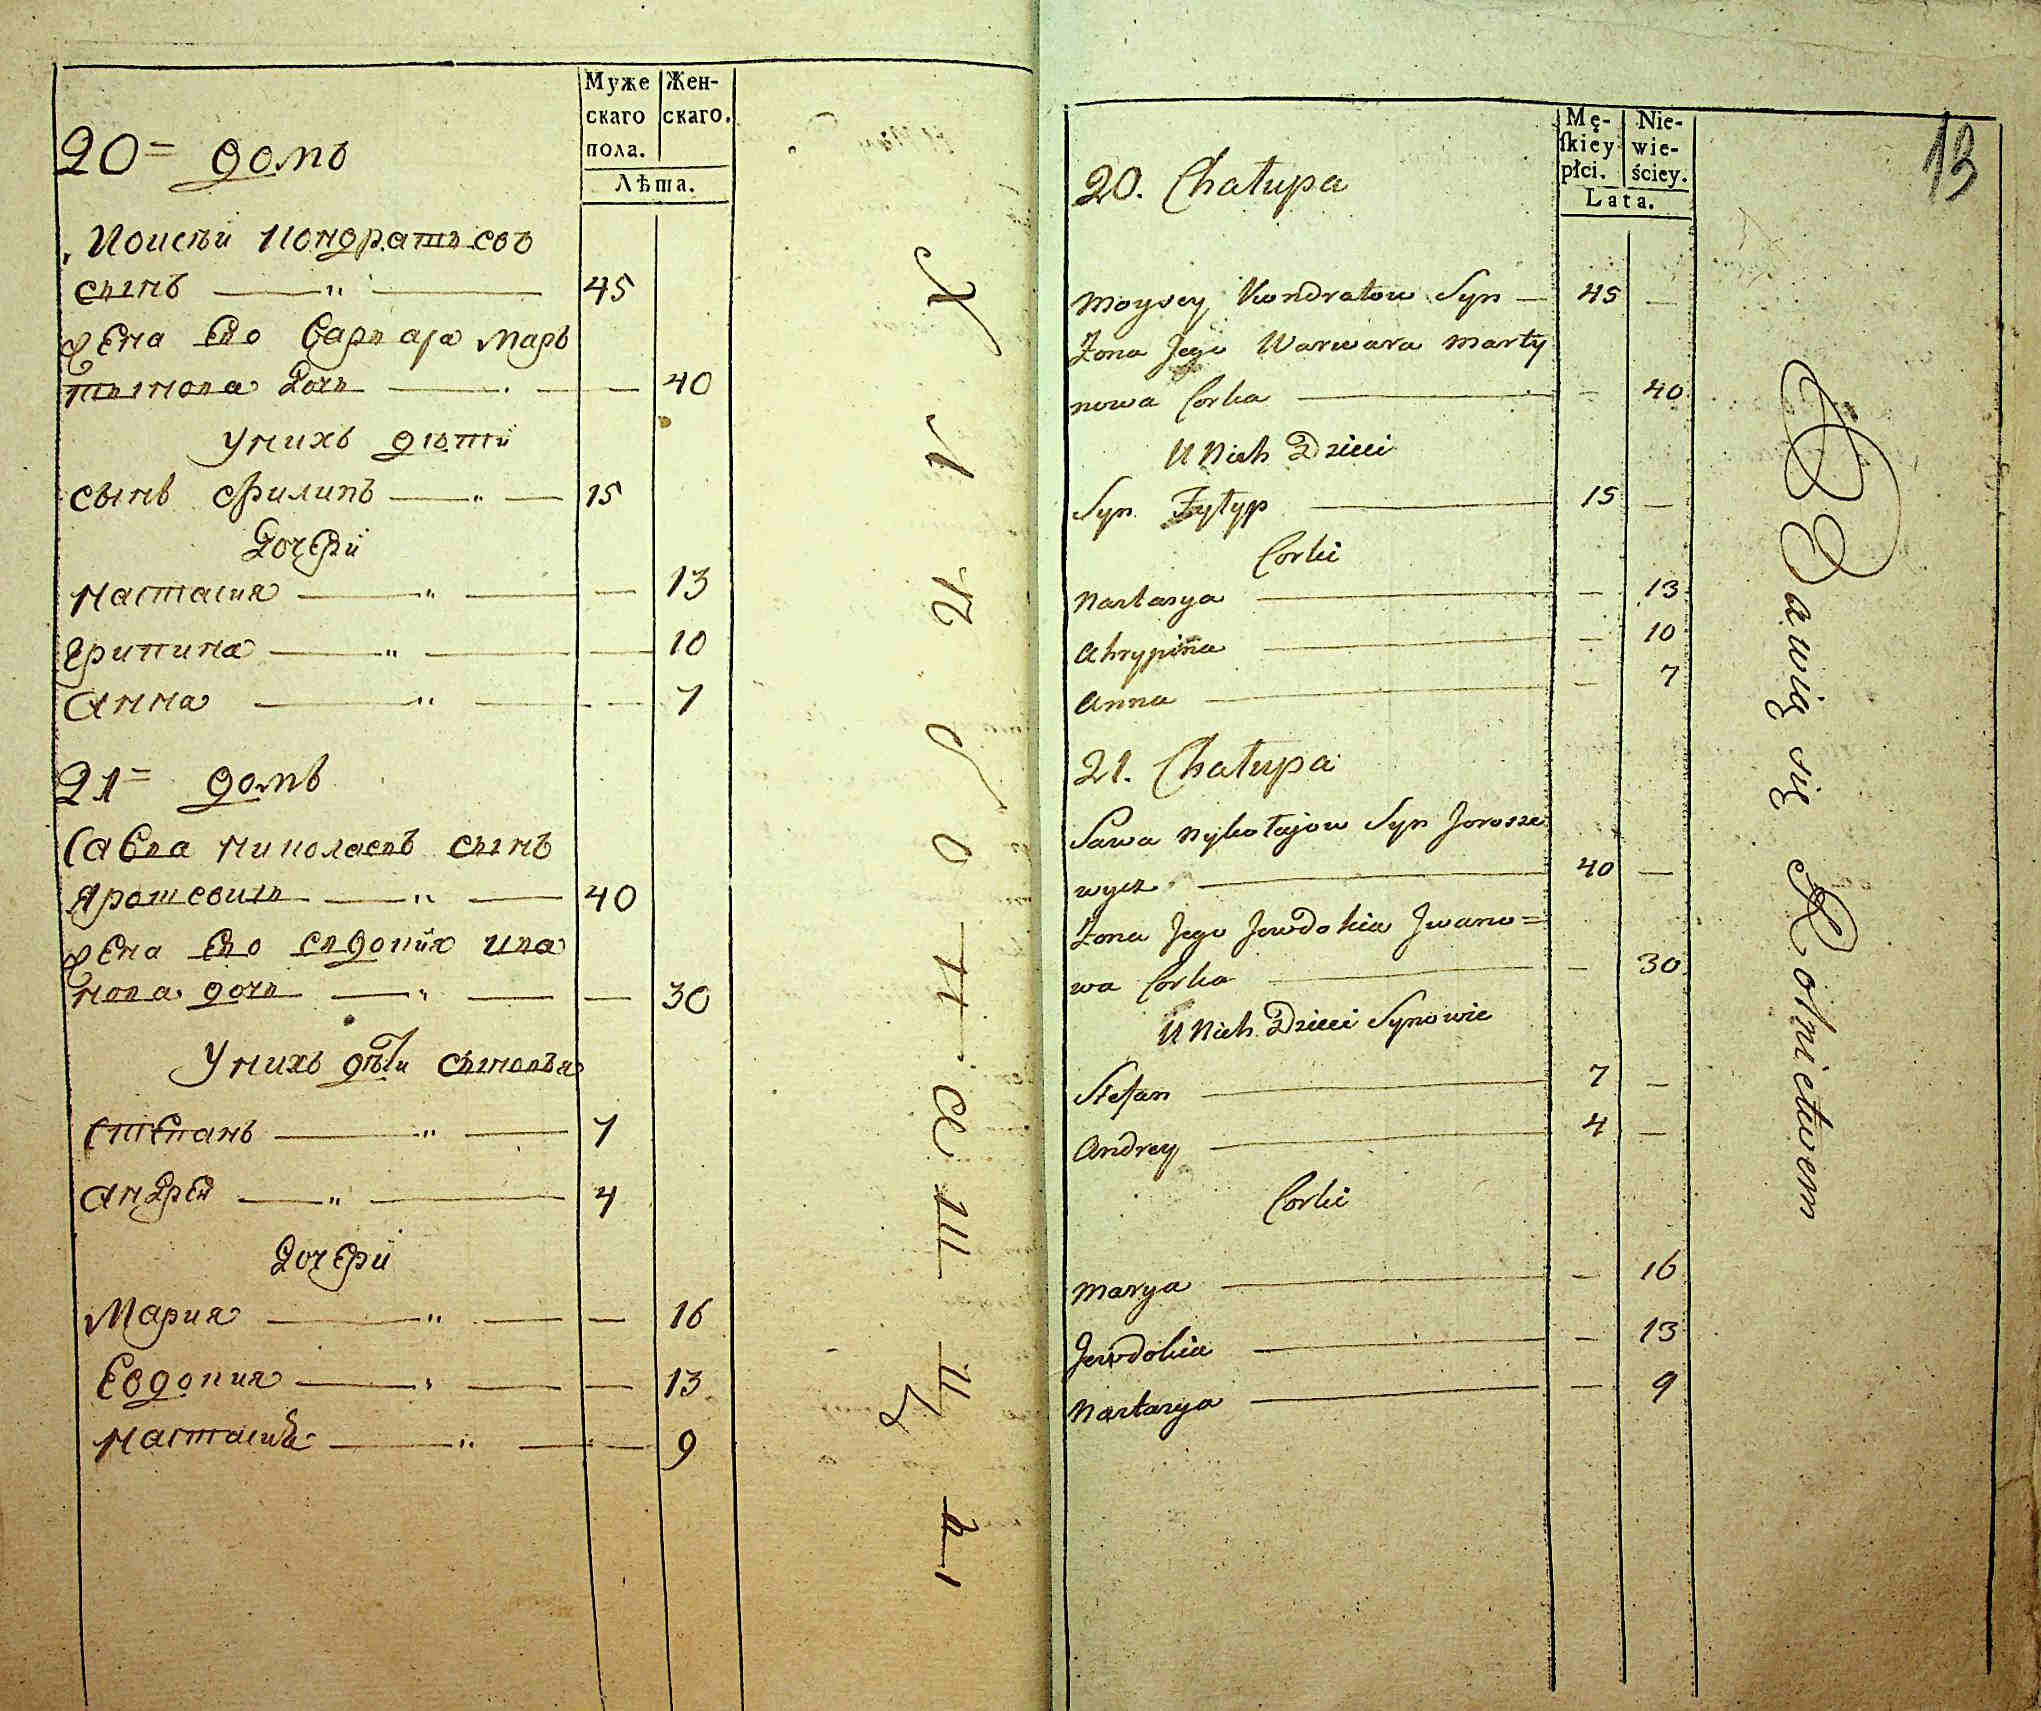 Муже
скаго
пола.
Жен-
скаго.
Лѣта.
20= домъ
Моисѣй Кондратьевъ
сынъ — „ — 45
жена Ево Варвара Марь
тынова Дочь — 40
У нихъ дѣти
сынъ Филипъ — „ — 15
Дочери
Настасия — „ — 13
Грипина — „ — 10
Анна — „ — 7
21= домъ
Савва николаевъ сынъ
Ярошевичь — „ — 40
жена Ево Евдокия ива
нова дочь — „ — 30
У нихъ дѣти сыновья
Степанъ — „ — 7
Андрей — „ — 4
Дочери
Мария — „ — 16
Евдокия — „ — 13
Настасия — „ — 9
Хлебопашцы
Mę-
ſkiey
płci.
Nie-
wie-
ściey.
Lata.
13
20. Chałupa
Moysey Kondratow Syn — 45 —
Żona Jego Warwara Marty
nowa Corka — 40
U Nich Dzieci
Syn Fyłyp — 15 —
Corki
Nastasya — 13
Ahrypina — 10
Anna — 7
21. Chałupa
Sawa Nykołajow Syn Jorosze
wycz — 40 —
Żona Jego Jewdokia Jwano=
wa Corka — 30
U Nich Dzieci Synowie
Stefan — 7 —
Andrey — 4 —
Corki
Marya — 16
Jewdokia — 13
Nastasya — 9
Bawią się Rolnictwem